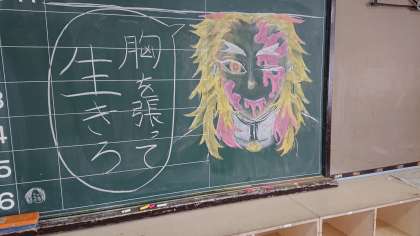 胸を張って
生きろ
3
4
5
6